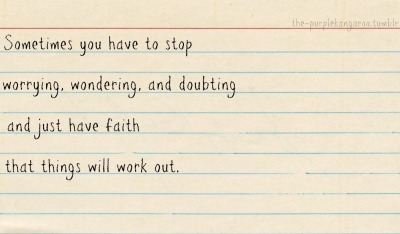 the-purplekangaroo.tumblr
Sometimes you have to stop
worrying, wondering, and doubting
and just have faith
that things will work out.